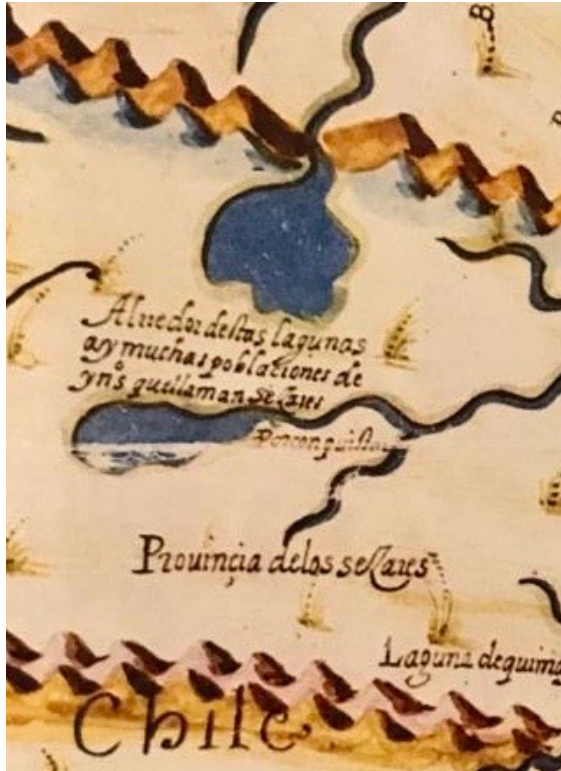 B
Alrredor destas lagunas
ay muchas poblationes de
yn.s que llaman sessares
Por conquistar
Prouinçia de los sessares
Laguna de quino
Chile